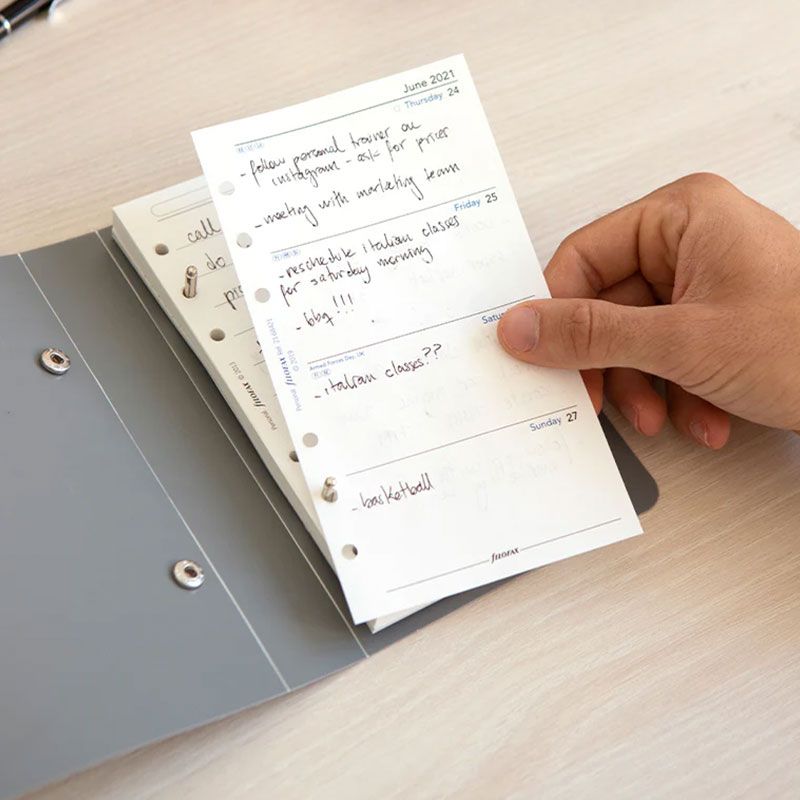 June 2021
Thursday 24
- follow personal trainer on
instagram - ask for prices
- meeting with marketing team
Friday 25
- reschedule italian classes
for saturday morning
- bbq!!!
Satu
Armed Forces Day, UK
- italian classes??
Sunday 27
- basketball
fILOFAX
call
do
Personal fILOFAX © 2013
Personal fILOFAX © 2019